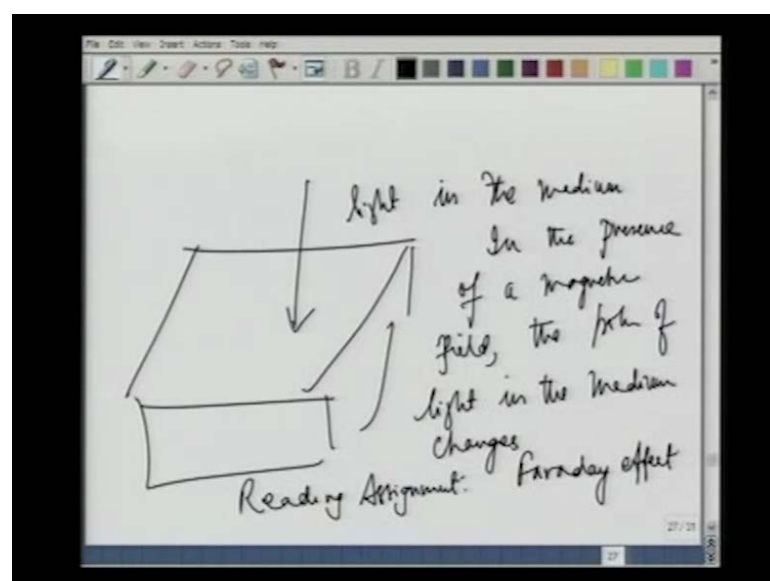 File Edit View Insert Actions Tools Help
B I
light in the medium
In the presence
of a magnetic
field, the poln of
light in the medium
changes
Faraday effect
Reading Assignment.
27/31
27